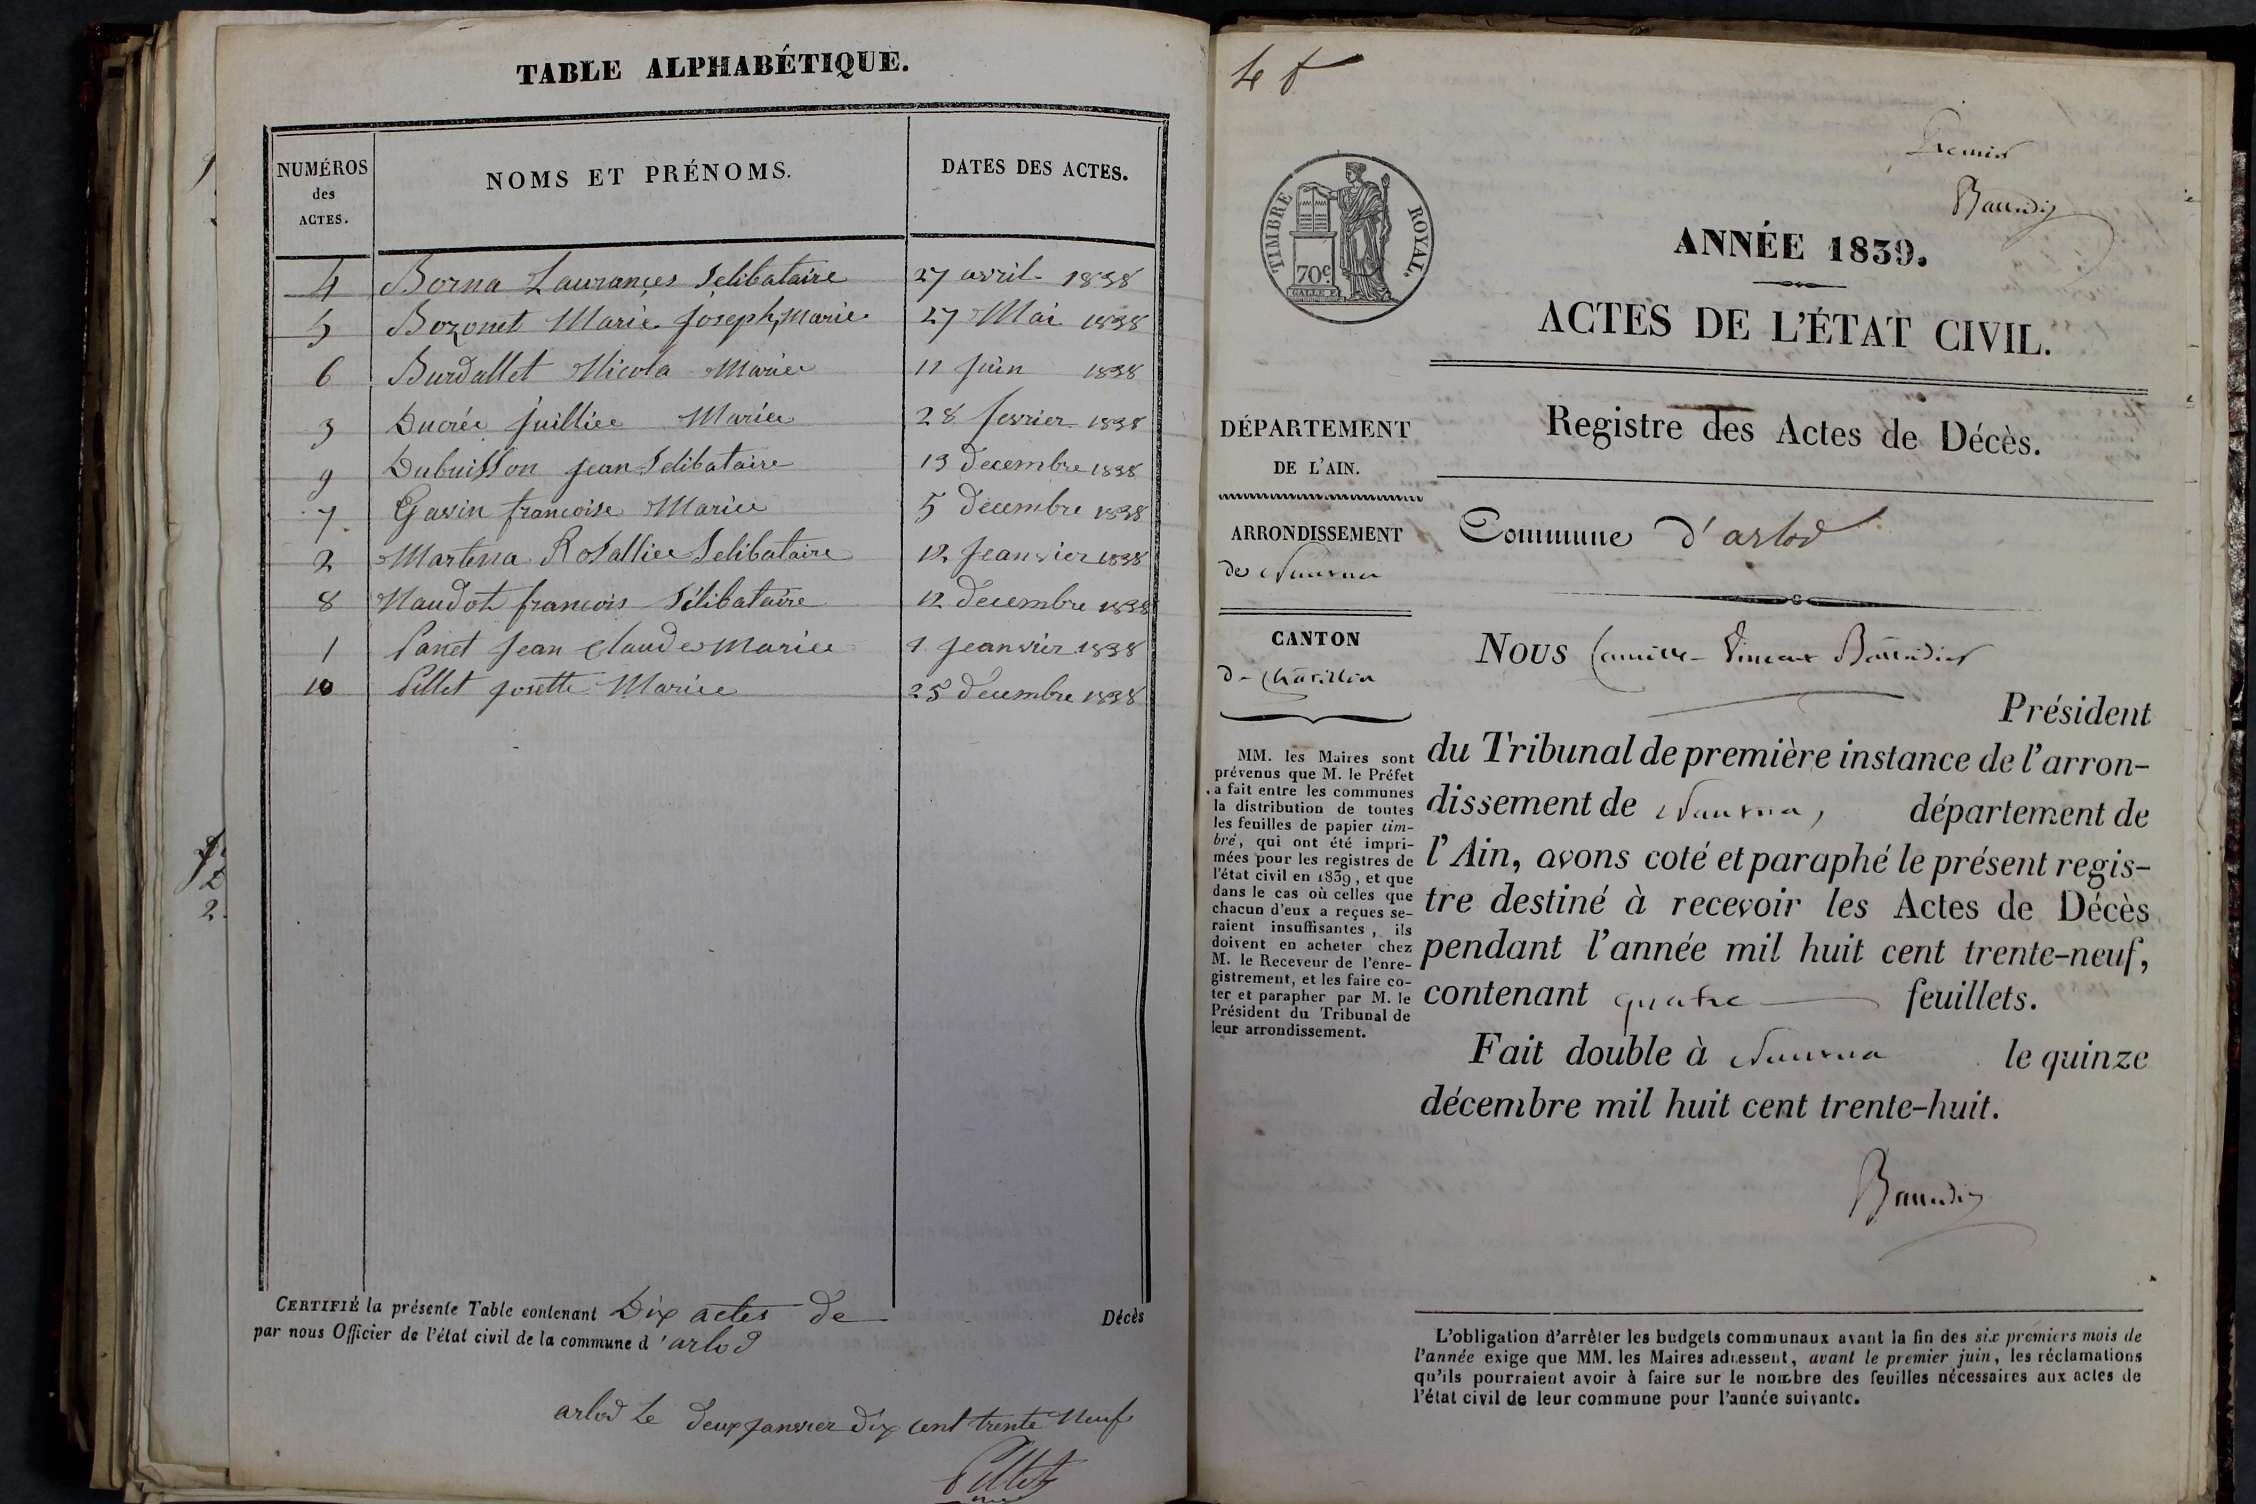 TABLE ALPHABÉTIQUE.
NUMÉROS des ACTES.
NOMS ET PRÉNOMS.
DATES DES ACTES.
4 Borna Laurances Selibataire 27 avril 1838
5 Bozonet Marie joseph, Marie 27 Mai 1838
6 Burdallet Nicola Mariee 11 juin 1838
3 Ducrée juilliee Mariee 28 fevrier 1838
9 Dubuisson jean Selibataire 13 decembre 1838
7 Gavin francoise Mariee 5 decembre 1838
2 Martena Rosalliee Selibataire 12 Jeanvier 1838
8 Naudot francois Sélibataire 12 decembre 1838
1 Panet Jean Claude Mariee 1 Jeanvier 1838
10 Pillet josette Mariee 25 decembre 1838
CERTIFIÉ la présente Table contenant Dix actes de Décès
par nous Officier de l'état civil de la commune d'arlod
arlod Le deux janvier dix cent trente Neuf
Pillet
Premier
Baundier
TIMBRE ROYAL.
70c.
ANNÉE 1839.
ACTES DE L'ÉTAT CIVIL.
Registre des Actes de Décès.
DÉPARTEMENT
DE L'AIN.
ARRONDISSEMENT
de Nantua
CANTON
de Chatillon
MM. les Maires sont
prévenus que M. le Préfet
a fait entre les communes
la distribution de toutes
les feuilles de papier tim-
bré, qui ont été impri-
mées pour les registres de
l'état civil en 1839, et que
dans le cas où celles que
chacun d'eux a reçues se-
raient insuffisantes, ils
doivent en acheter chez
M. le Receveur de l'enre-
gistrement, et les faire co-
ter et parapher par M. le
Président du Tribunal de
leur arrondissement.
Commune d'arlod
NOUS Camille Vincent Baundier
Président
du Tribunal de première instance de l'arron-
dissement de Nantua, département de
l'Ain, avons coté et paraphé le présent regis-
tre destiné à recevoir les Actes de Décès
pendant l'année mil huit cent trente-neuf,
contenant quatre feuillets.
Fait double à Nantua le quinze
décembre mil huit cent trente-huit.
Baundier
L'obligation d'arrêter les budgets communaux avant la fin des six premiers mois de
l'année exige que MM. les Maires adressent, avant le premier juin, les réclamations
qu'ils pourraient avoir à faire sur le nombre des feuilles nécessaires aux actes de
l'état civil de leur commune pour l'année suivante.